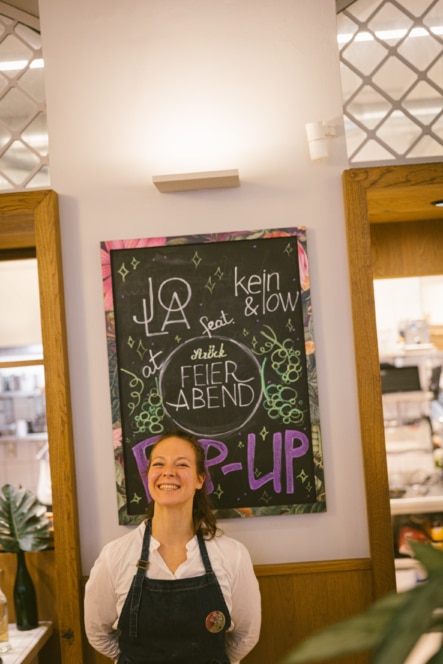 JOLA
kein
& low
feat.
at
Ströck
FEIER
ABEND
POP-UP